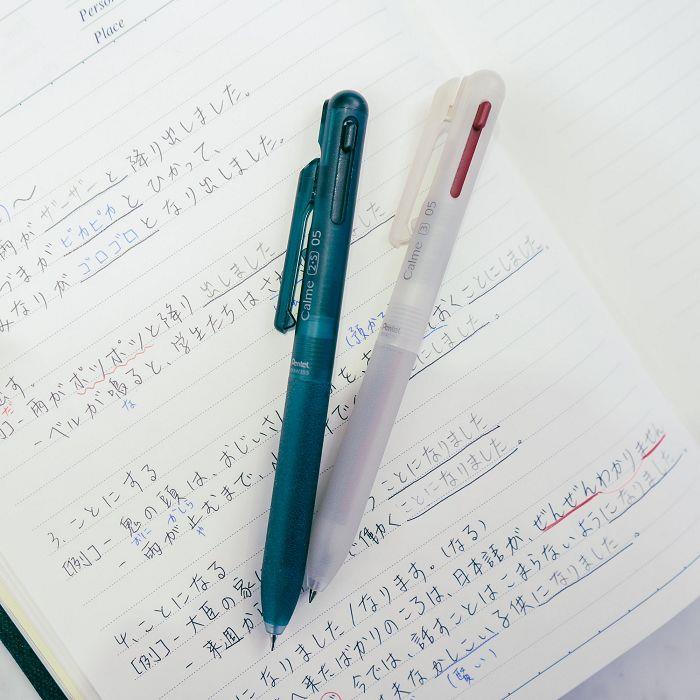 Person
Place
〜
雨がザーザーと降り出しました。
づまがピカピカとひかって、
みなりがゴロゴロとなり出しました。
ます。
だ
]- 雨がポツポツと降り出しました
- ベルが鳴ると、学生たちはさ ました
な
3. ことにする
[例] - 鬼の頭は、おじいさん を おくことにしました。
おに かしら
(預かる
- 雨が止むまで、 にしました。
や
4. ことになる
[例] - 大臣の家に ことになりました
- 来週から で働くことになりました。
になりました/なります。(なる)
へ来たばかりのころは、日本語がぜんぜんわかりません
今では、話すことはこまらないようになりました。
夫なかしこい子供になりました。
(賢い)
Calme 2+S 05
Pentel
Calme 3 05
Pentel